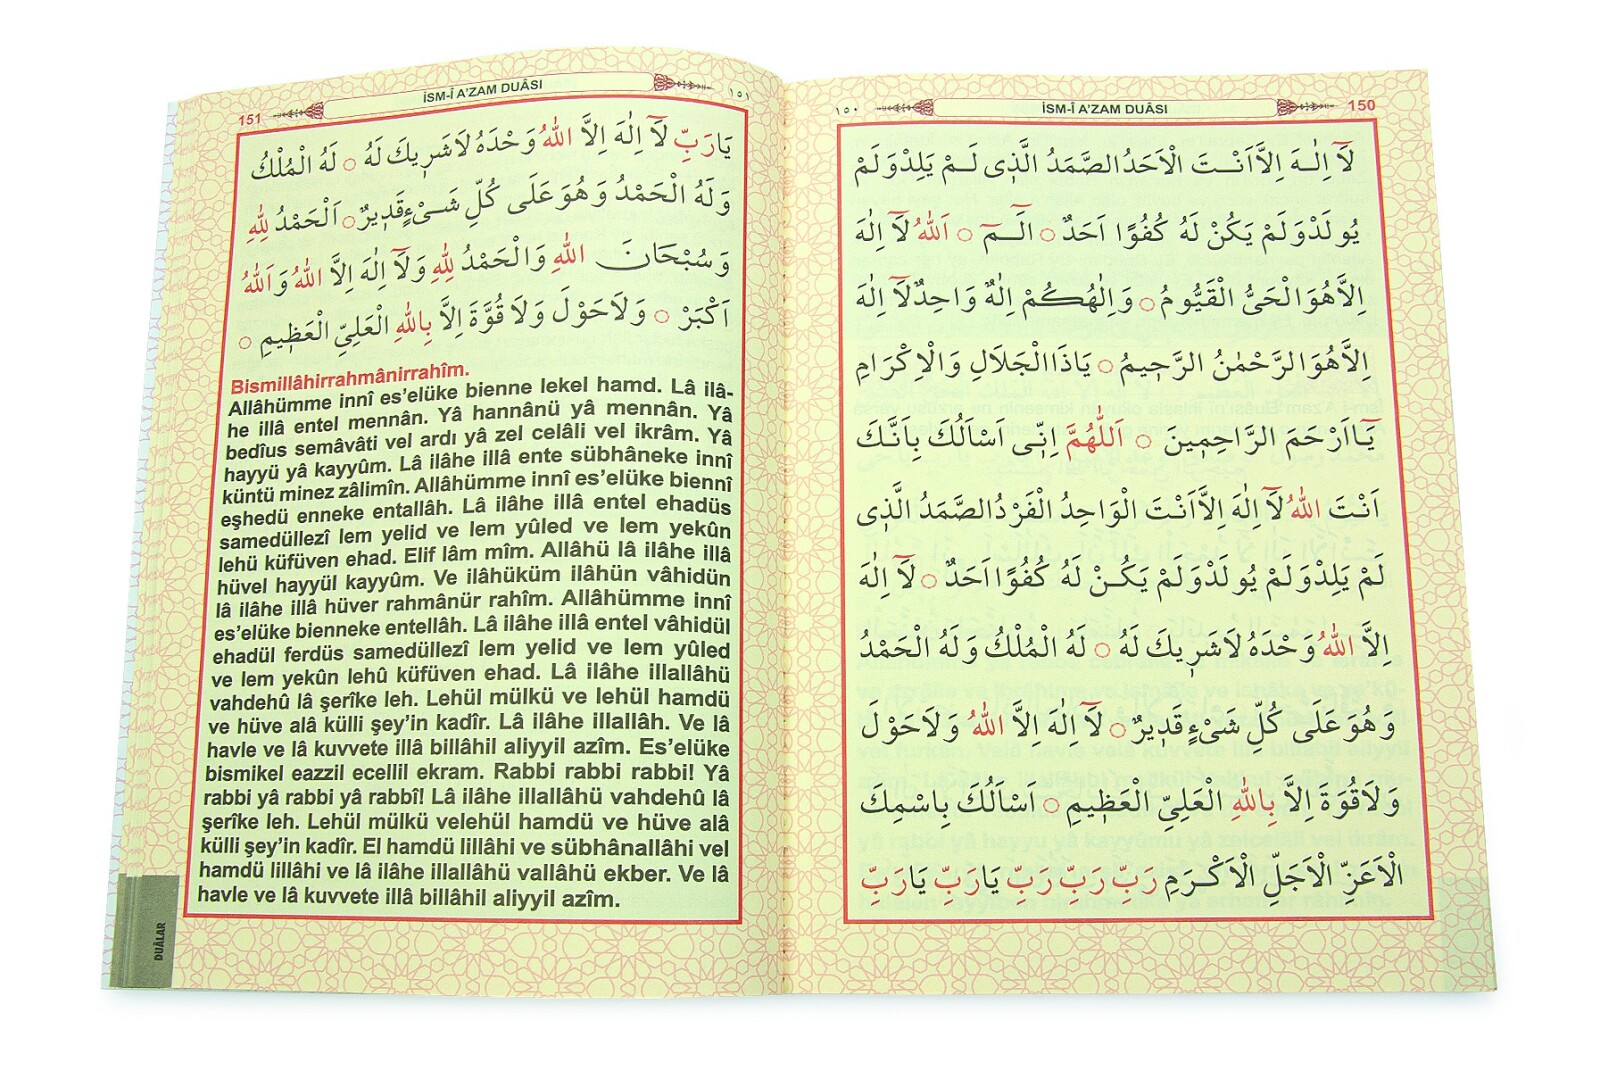 İSM-Î A'ZAM DUÂSI
150
١٥٠
لَٓا اِلٰهَ اِلَّا اَنْتَ الْاَحَدُ الصَّمَدُ الَّذٖى لَمْ يَلِدْ وَلَمْ
يُولَدْ وَلَمْ يَكُنْ لَهُ كُفُوًا اَحَدٌ ○ الٓمٓ ○ اَللّٰهُ لَٓا اِلٰهَ
اِلَّا هُوَ الْحَىُّ الْقَيُّومُ ○ وَاِلٰهُكُمْ اِلٰهٌ وَاحِدٌ لَٓا اِلٰهَ
اِلَّا هُوَ الرَّحْمٰنُ الرَّحٖيمُ ○ يَاذَا الْجَلَالِ وَالْاِكْرَامِ
يَٓا اَرْحَمَ الرَّاحِمٖينَ ○ اَللّٰهُمَّ اِنّٖى اَسْاَلُكَ بِاَنَّكَ
اَنْتَ اللّٰهُ لَٓا اِلٰهَ اِلَّا اَنْتَ الْوَاحِدُ الْفَرْدُ الصَّمَدُ الَّذٖى
لَمْ يَلِدْ وَلَمْ يُولَدْ وَلَمْ يَكُنْ لَهُ كُفُوًا اَحَدٌ ○ لَٓا اِلٰهَ
اِلَّا اللّٰهُ وَحْدَهُ لَا شَرٖيكَ لَهُ ○ لَهُ الْمُلْكُ وَلَهُ الْحَمْدُ
وَهُوَ عَلَى كُلِّ شَىْءٍ قَدٖيرٌ ○ لَٓا اِلٰهَ اِلَّا اللّٰهُ وَلَا حَوْلَ
وَلَا قُوَّةَ اِلَّا بِاللّٰهِ الْعَلِىِّ الْعَظٖيمِ ○ اَسْاَلُكَ بِاسْمِكَ
الْاَعَزِّ الْاَجَلِّ الْاَكْرَمِ رَبِّ رَبِّ رَبِّ يَارَبِّ يَارَبِّ
151
İSM-Î A'ZAM DUÂSI
١٥١
يَارَبِّ لَٓا اِلٰهَ اِلَّا اللّٰهُ وَحْدَهُ لَا شَرٖيكَ لَهُ ○ لَهُ الْمُلْكُ
وَلَهُ الْحَمْدُ وَهُوَ عَلَى كُلِّ شَىْءٍ قَدٖيرٌ ○ اَلْحَمْدُ لِلّٰهِ
وَسُبْحَانَ اللّٰهِ وَالْحَمْدُ لِلّٰهِ وَلَٓا اِلٰهَ اِلَّا اللّٰهُ وَاَللّٰهُ
اَكْبَرْ ○ وَلَا حَوْلَ وَلَا قُوَّةَ اِلَّا بِاللّٰهِ الْعَلِىِّ الْعَظٖيمِ ○
Bismillâhirrahmânirrahîm.
Allâhümme innî es'elüke bienne lekel hamd. Lâ ilâ-
he illâ entel mennân. Yâ hannânü yâ mennân. Yâ
bedîus semâvâti vel ardı yâ zel celâli vel ikrâm. Yâ
hayyü yâ kayyûm. Lâ ilâhe illâ ente sübhâneke innî
küntü minez zâlimîn. Allâhümme innî es'elüke biennî
eşhedü enneke entallâh. Lâ ilâhe illâ entel ehadüs
samedüllezî lem yelid ve lem yûled ve lem yekûn
lehü küfüven ehad. Elif lâm mîm. Allâhü lâ ilâhe illâ
hüvel hayyül kayyûm. Ve ilâhüküm ilâhün vâhidün
lâ ilâhe illâ hüver rahmânür rahîm. Allâhümme innî
es'elüke bienneke entellâh. Lâ ilâhe illâ entel vâhidül
ehadül ferdüs samedüllezî lem yelid ve lem yûled
ve lem yekûn lehû küfüven ehad. Lâ ilâhe illallâhü
vahdehû lâ şerîke leh. Lehül mülkü ve lehül hamdü
ve hüve alâ külli şey'in kadîr. Lâ ilâhe illallâh. Ve lâ
havle ve lâ kuvvete illâ billâhil aliyyil azîm. Es'elüke
bismikel eazzil ecellil ekram. Rabbi rabbi rabbi! Yâ
rabbi yâ rabbi yâ rabbî! Lâ ilâhe illallâhü vahdehû lâ
şerîke leh. Lehül mülkü velehül hamdü ve hüve alâ
külli şey'in kadîr. El hamdü lillâhi ve sübhânallâhi vel
hamdü lillâhi ve lâ ilâhe illallâhü vallâhü ekber. Ve lâ
havle ve lâ kuvvete illâ billâhil aliyyil azîm.
DUÂLAR